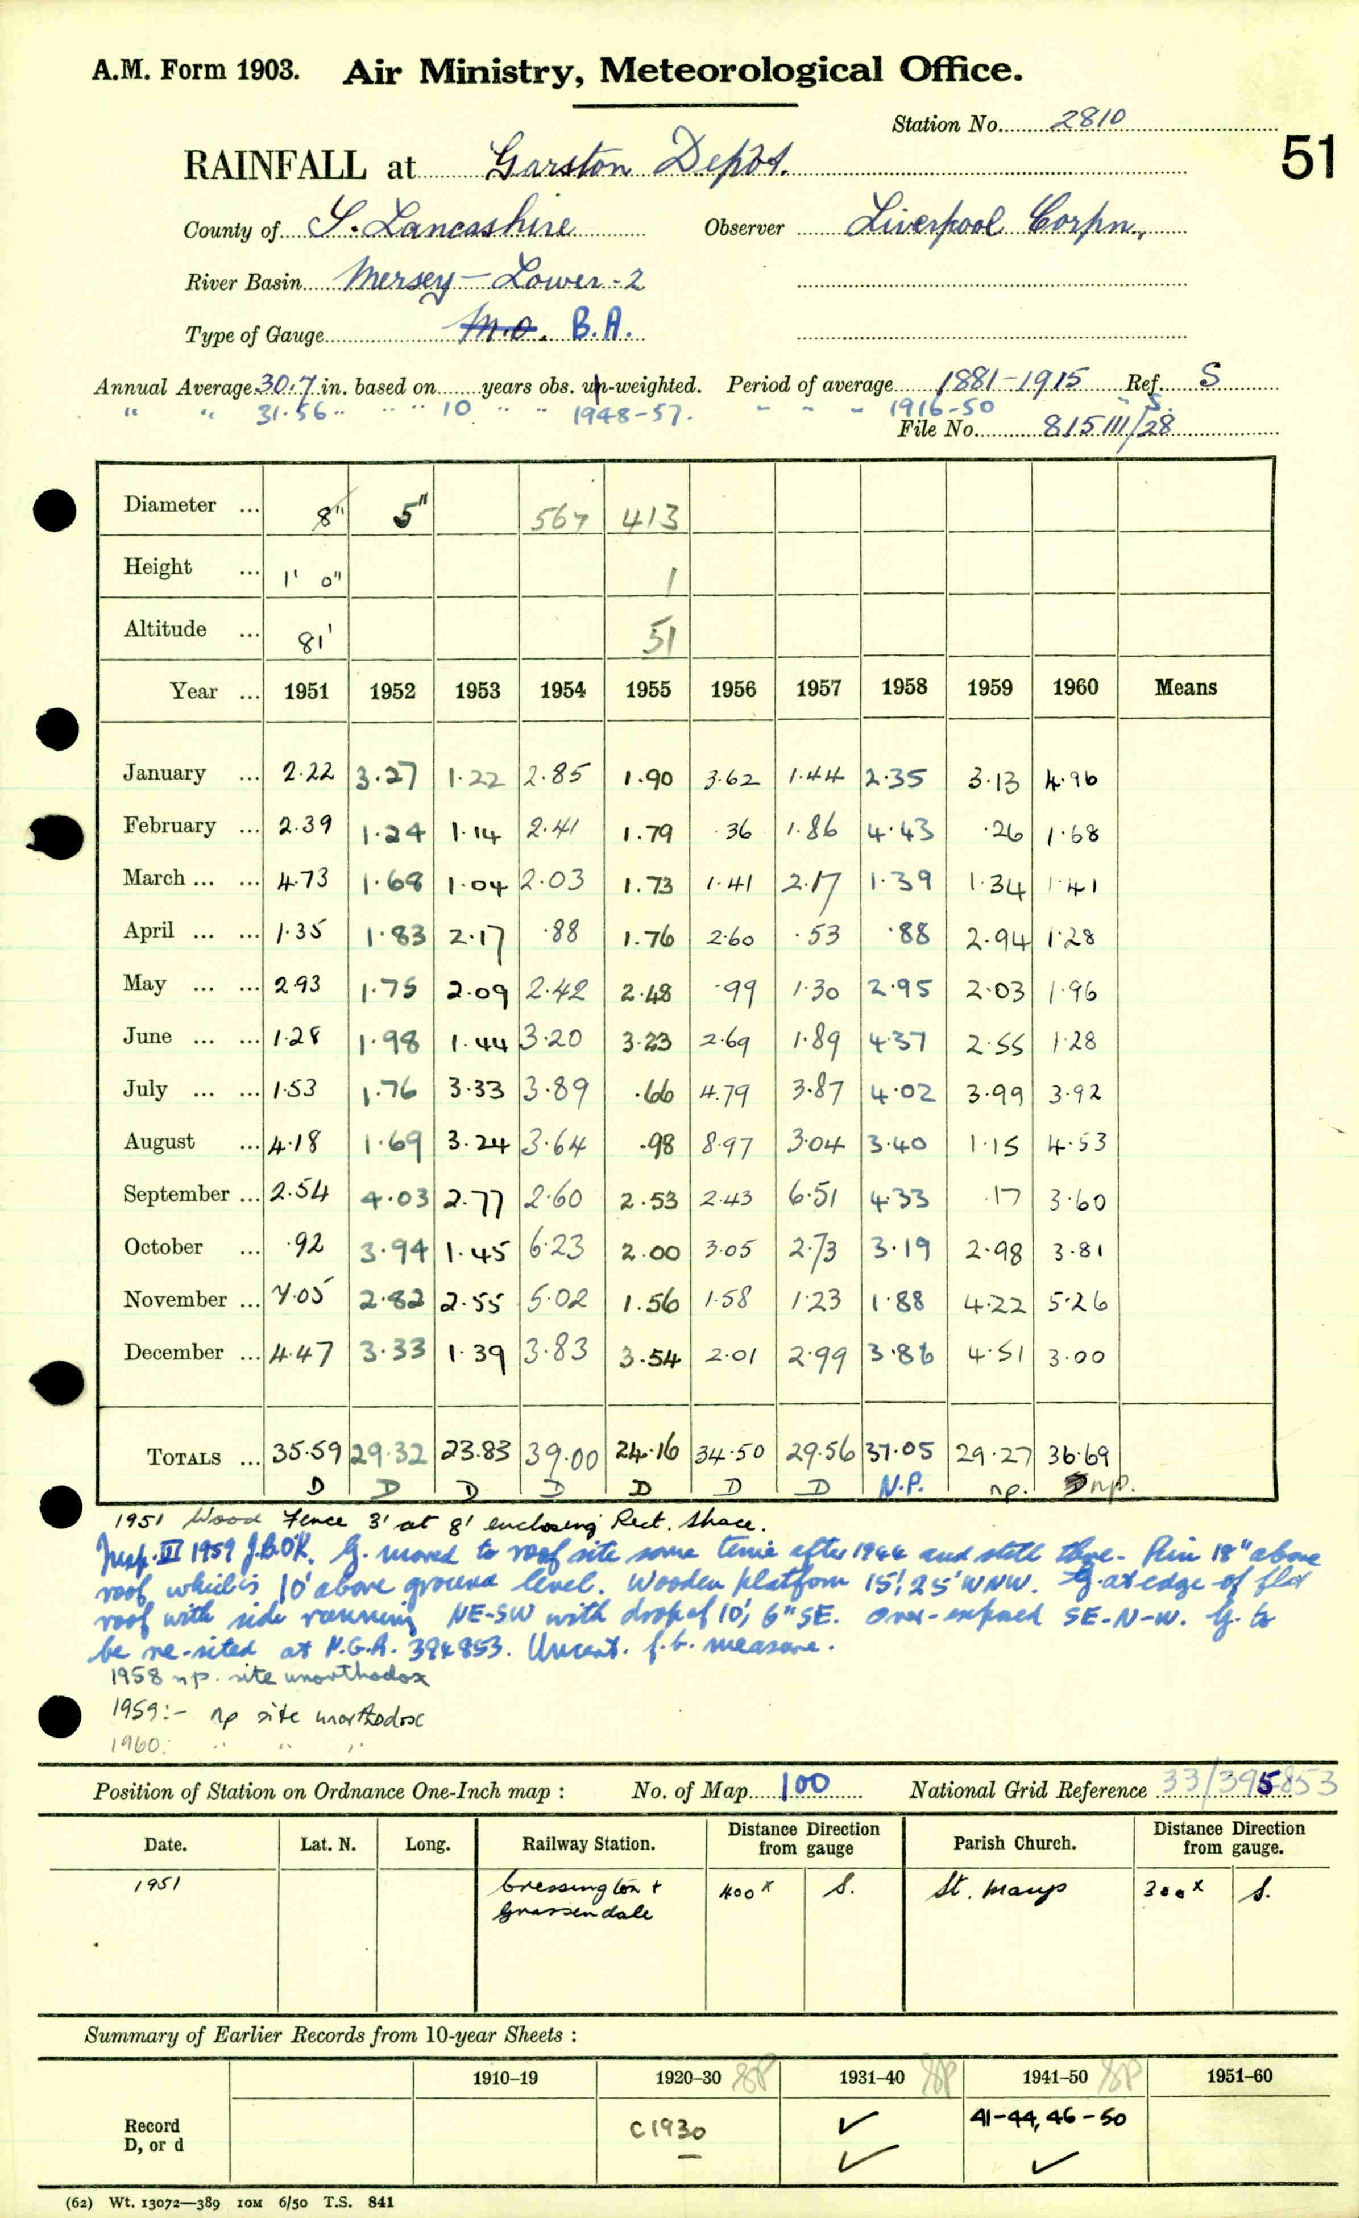 A.M. Form 1903. Air Ministry, Meteorological Office.
Station No. 2810
51
RAINFALL at Garston Depôt.
County of S. Lancashire Observer Liverpool Corpn.
River Basin Mersey - Lower - 2
Type of Gauge M.O. B.A.
Annual Average 30.7 in. based on years obs. un-weighted. Period of average 1881-1915 Ref. S
" " 31.56 " " " 10 " " 1948-57. " " " 1916-50 " S.
File No. 815111/28
Diameter ... 8" 5" 567 413
Height ... 1' 0" 1
Altitude ... 81' 51
Year ... 1951 1952 1953 1954 1955 1956 1957 1958 1959 1960 Means
January ... 2.22 3.27 1.22 2.85 1.90 3.62 1.44 2.35 3.13 4.96
February ... 2.39 1.24 1.14 2.41 1.79 .36 1.86 4.43 .26 1.68
March ... ... 4.73 1.68 1.04 2.03 1.73 1.41 2.17 1.39 1.34 1.41
April ... ... 1.35 1.83 2.17 .88 1.76 2.60 .53 .88 2.94 1.28
May ... ... 2.93 1.75 2.09 2.42 2.48 .99 1.30 2.95 2.03 1.96
June ... ... 1.28 1.98 1.44 3.20 3.23 2.69 1.89 4.37 2.55 1.28
July ... ... 1.53 1.76 3.33 3.89 .66 4.79 3.87 4.02 3.99 3.92
August ... 4.18 1.69 3.24 3.64 .98 8.97 3.04 3.40 1.15 4.53
September ... 2.54 4.03 2.77 2.60 2.53 2.43 6.51 4.33 .17 3.60
October ... .92 3.94 1.45 6.23 2.00 3.05 2.73 3.19 2.98 3.81
November ... 7.05 2.82 2.55 5.02 1.56 1.58 1.23 1.88 4.22 5.26
December ... 4.47 3.33 1.39 3.83 3.54 2.01 2.99 3.86 4.51 3.00
TOTALS ... 35.59 29.32 23.83 39.00 24.16 34.50 29.56 37.05 29.27 36.69
D D D D D D D N.P. np. np.
1951 Wood Fence 3' at 8' enclosing Rect. Space.
Insp. III 1959 J.B.O'K. G. moved to roof site some time after 1944 and still there. Rim 18" above
roof which is 10' above ground level. Wooden platform 15', 25' WNW. G. at edge of flat
roof with side running NE-SW with drop of 10', 6" SE. Over-exposed SE-N-W. G. to
be re-sited at N.G.R. 394853. Uncert. f.b. measure.
1958 n.p. site unorthodox
1959:- np site unorthodox
1960: " " "
Position of Station on Ordnance One-Inch map : No. of Map 100 National Grid Reference 33/395853
Date. Lat. N. Long. Railway Station. Distance from Direction gauge Parish Church. Distance from Direction gauge.
1951 Cressington + Grassendale 400x S. St. Marys 300x S.
Summary of Earlier Records from 10-year Sheets :
1910–19 1920–30 8P 1931–40 8P 1941–50 8P 1951–60
Record C1930 ✓ 41-44, 46-50
D, or d – ✓ ✓
(62) Wt. 13072—389 10M 6/50 T.S. 841